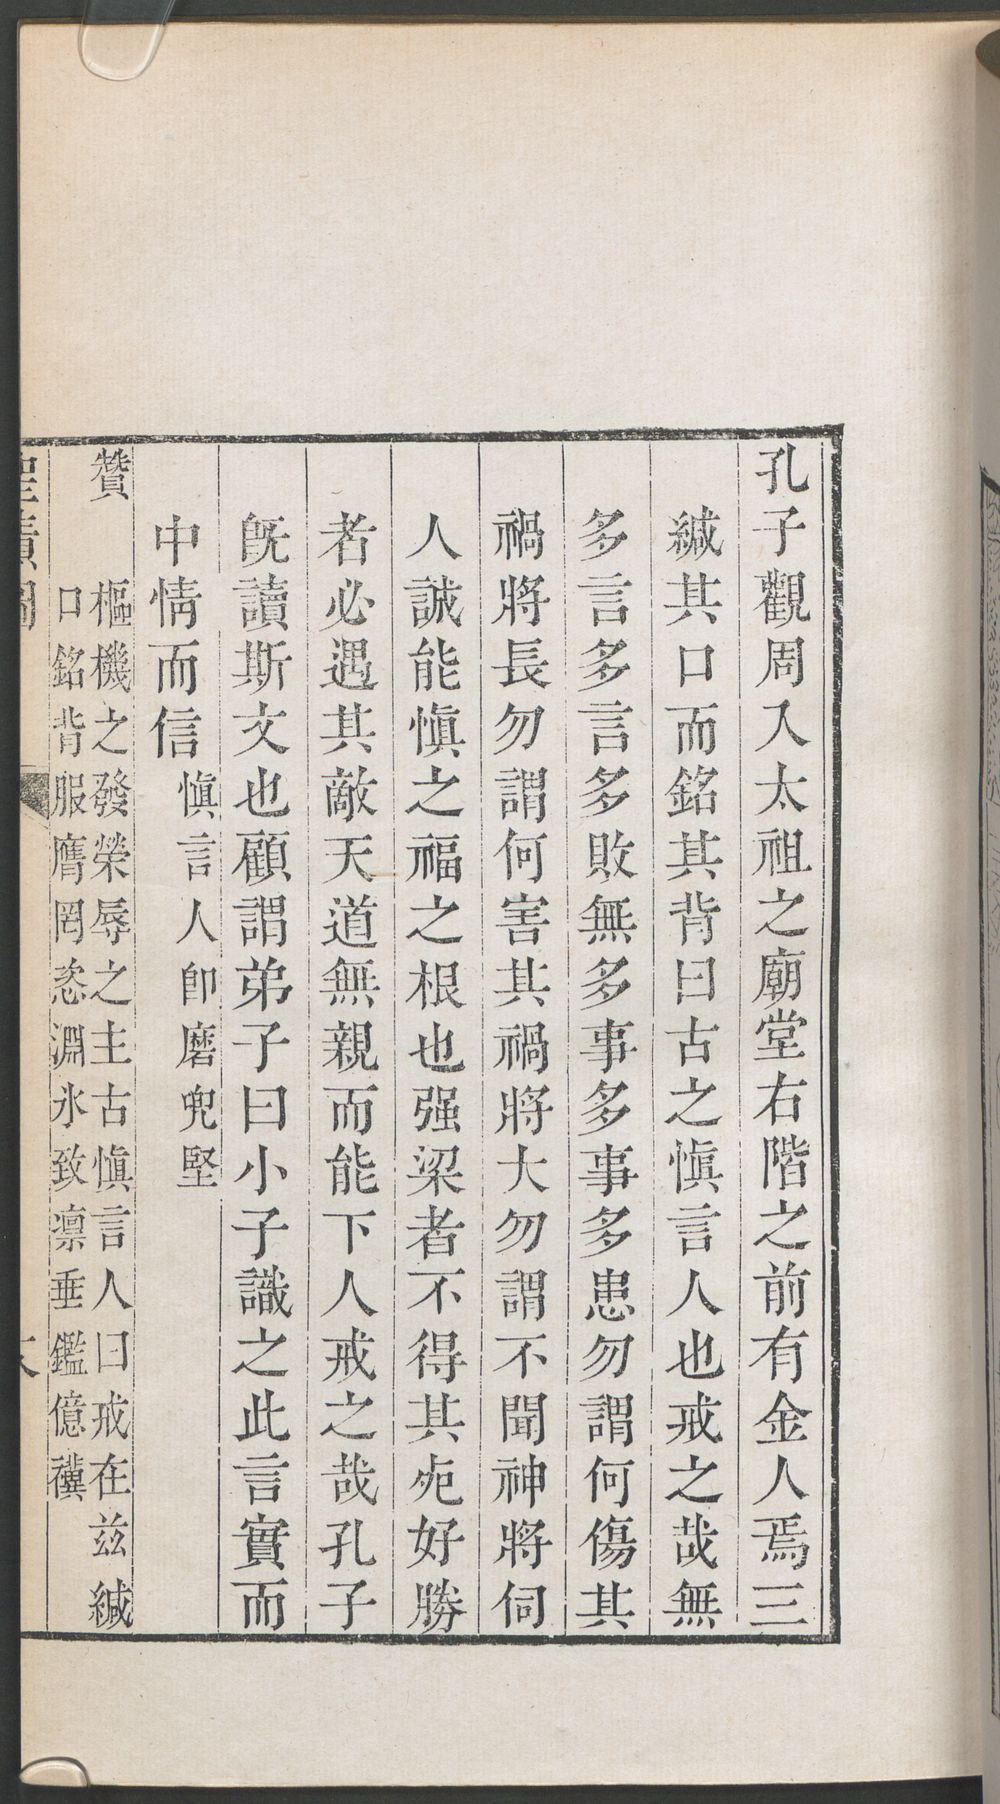 孔子觀周入太祖之廟堂右階之前有金人焉三
緘其口而銘其背曰古之愼言人也戒之哉無
多言多言多敗無多事多事多患勿謂何傷其
禍將長勿謂何害其禍將大勿謂不聞神將伺
人誠能愼之福之根也强梁者不得其死好勝
者必遇其敵天道無親而能下人戒之哉孔子
旣讀斯文也顧謂弟子曰小子識之此言實而
中情而信 愼言人卽磨兜堅
贊 樞機之發榮辱之主古愼言人曰戒在兹緘
口銘背服膺罔忞淵氷致凛垂鑑億禩
聖蹟圖